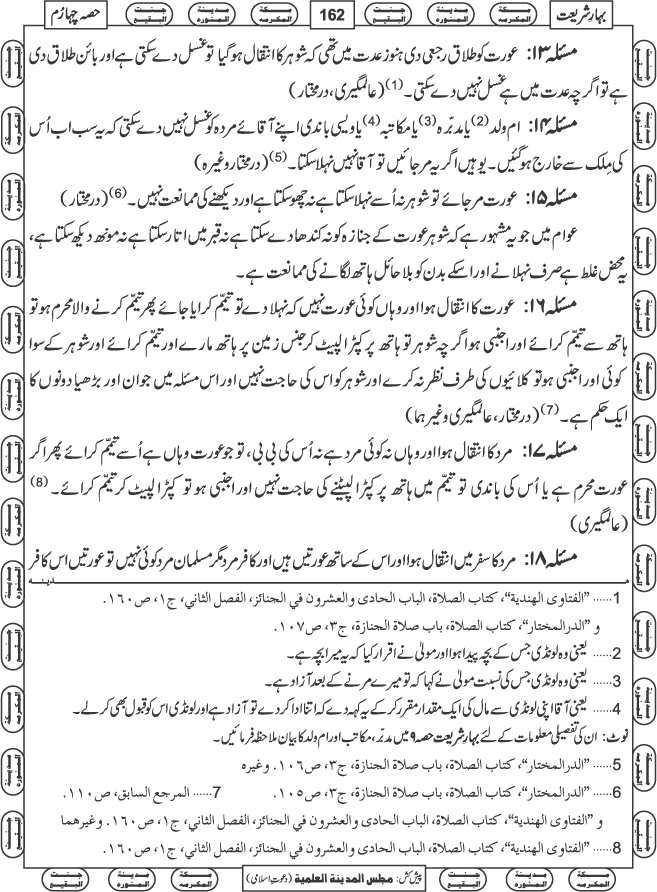 بہارِ شریعت
مكة المكرمه
مدينة المنوره
جنت البقيع
162
مكة المكرمه
مدينة المنوره
جنت البقيع
حصہ چہارم
مسئلہ ۱۳: عورت کو طلاق رجعی دی ہنوز عدت میں تھی کہ شوہر کا انتقال ہوگیا تو غسل دے سکتی ہے اور بائن طلاق دی
ہے تو اگرچہ عدت میں ہے غسل نہیں دے سکتی۔ (1) (عالمگیری، درمختار)
مسئلہ ۱۴: ام ولد (2) یا مدبرہ (3) یا مکاتبہ (4) یا ویسی باندی اپنے آقائے مردہ کو غسل نہیں دے سکتی کہ یہ سب اب اُس
کی مِلک سے خارج ہوگئیں۔ یوہیں اگر یہ مر جائیں تو آقا نہیں نہلا سکتا۔ (5) (درمختار وغیرہ)
مسئلہ ۱۵: عورت مرجائے تو شوہر نہ اُسے نہلا سکتا ہے نہ چھو سکتا ہے اور دیکھنے کی ممانعت نہیں۔ (6) (درمختار)
عوام میں جو یہ مشہور ہے کہ شوہر عورت کے جنازہ کو نہ کندھا دے سکتا ہے نہ قبر میں اتار سکتا ہے نہ مونھ دیکھ سکتا ہے،
یہ محض غلط ہے صرف نہلانے اور اسکے بدن کو بلا حائل ہاتھ لگانے کی ممانعت ہے۔
مسئلہ ۱۶: عورت کا انتقال ہوا اور وہاں کوئی عورت نہیں کہ نہلا دے تو تیمّم کرایا جائے پھر تیمّم کرنے والا محرم ہو تو
ہاتھ سے تیمّم کرائے اور اجنبی ہو اگرچہ شوہر تو ہاتھ پر کپڑا لپیٹ کر جنس زمین پر ہاتھ مارے اور تیمّم کرائے اور شوہر کے سوا
کوئی اور اجنبی ہو تو کلائیوں کی طرف نظر نہ کرے اور شوہر کو اس کی حاجت نہیں اور اس مسئلہ میں جوان اور بڑھیا دونوں کا
ایک حکم ہے۔ (7) (درمختار، عالمگیری وغیرہما)
مسئلہ ۱۷: مرد کا انتقال ہوا اور وہاں نہ کوئی مرد ہے نہ اُس کی بی بی، تو جو عورت وہاں ہے اُسے تیمّم کرائے پھر اگر
عورت محرم ہے یا اُس کی باندی تو تیمّم میں ہاتھ پر کپڑا لپیٹنے کی حاجت نہیں اور اجنبی ہو تو کپڑا لپیٹ کر تیمّم کرائے۔ (8)
(عالمگیری)
مسئلہ ۱۸: مرد کا سفر میں انتقال ہوا اور اس کے ساتھ عورتیں ہیں اور کافر مرد مگر مسلمان مرد کوئی نہیں تو عورتیں اس کافر
مدينه
1...... "الفتاوى الهندية"، كتاب الصلاة، الباب الحادى والعشرون في الجنائز، الفصل الثاني، ج١، ص١٦٠.
و "الدرالمختار"، كتاب الصلاة، باب صلاة الجنازة، ج٣، ص١٠٧.
2...... یعنی وہ لونڈی جس کے بچہ پیدا ہوا اور مولیٰ نے اقرار کیا کہ یہ میرا بچہ ہے۔
3...... یعنی وہ لونڈی جس کی نسبت مولیٰ نے کہا کہ تو میرے مرنے کے بعد آزاد ہے۔
4...... یعنی آقا اپنی لونڈی سے مال کی ایک مقدار مقرر کرکے یہ کہہ دے کہ اتنا ادا کردے تو آزاد ہے اور لونڈی اس کو قبول بھی کرلے۔
نوٹ: ان کی تفصیلی معلومات کے لئے بہار شریعت حصہ ۹ میں مدبّر، مکاتب اور ام ولد کا بیان ملاحظہ فرمائیں۔
5...... "الدرالمختار"، كتاب الصلاة، باب صلاة الجنازة، ج٣، ص١٠٦. وغيره
6...... "الدرالمختار"، كتاب الصلاة، باب صلاة الجنازة، ج٣، ص١٠٥. 7...... المرجع السابق، ص١١٠.
و "الفتاوى الهندية"، كتاب الصلاة، الباب الحادى والعشرون في الجنائز، الفصل الثاني، ج١، ص١٦٠. وغيرهما
8...... "الفتاوى الهندية"، كتاب الصلاة، الباب الحادى والعشرون في الجنائز، الفصل الثاني، ج١، ص١٦٠.
مكة المكرمه
مدينة المنوره
جنت البقيع
پیش کش: مجلس المدينة العلمية (دعوتِ اسلامی)
مكة المكرمه
مدينة المنوره
جنت البقيع